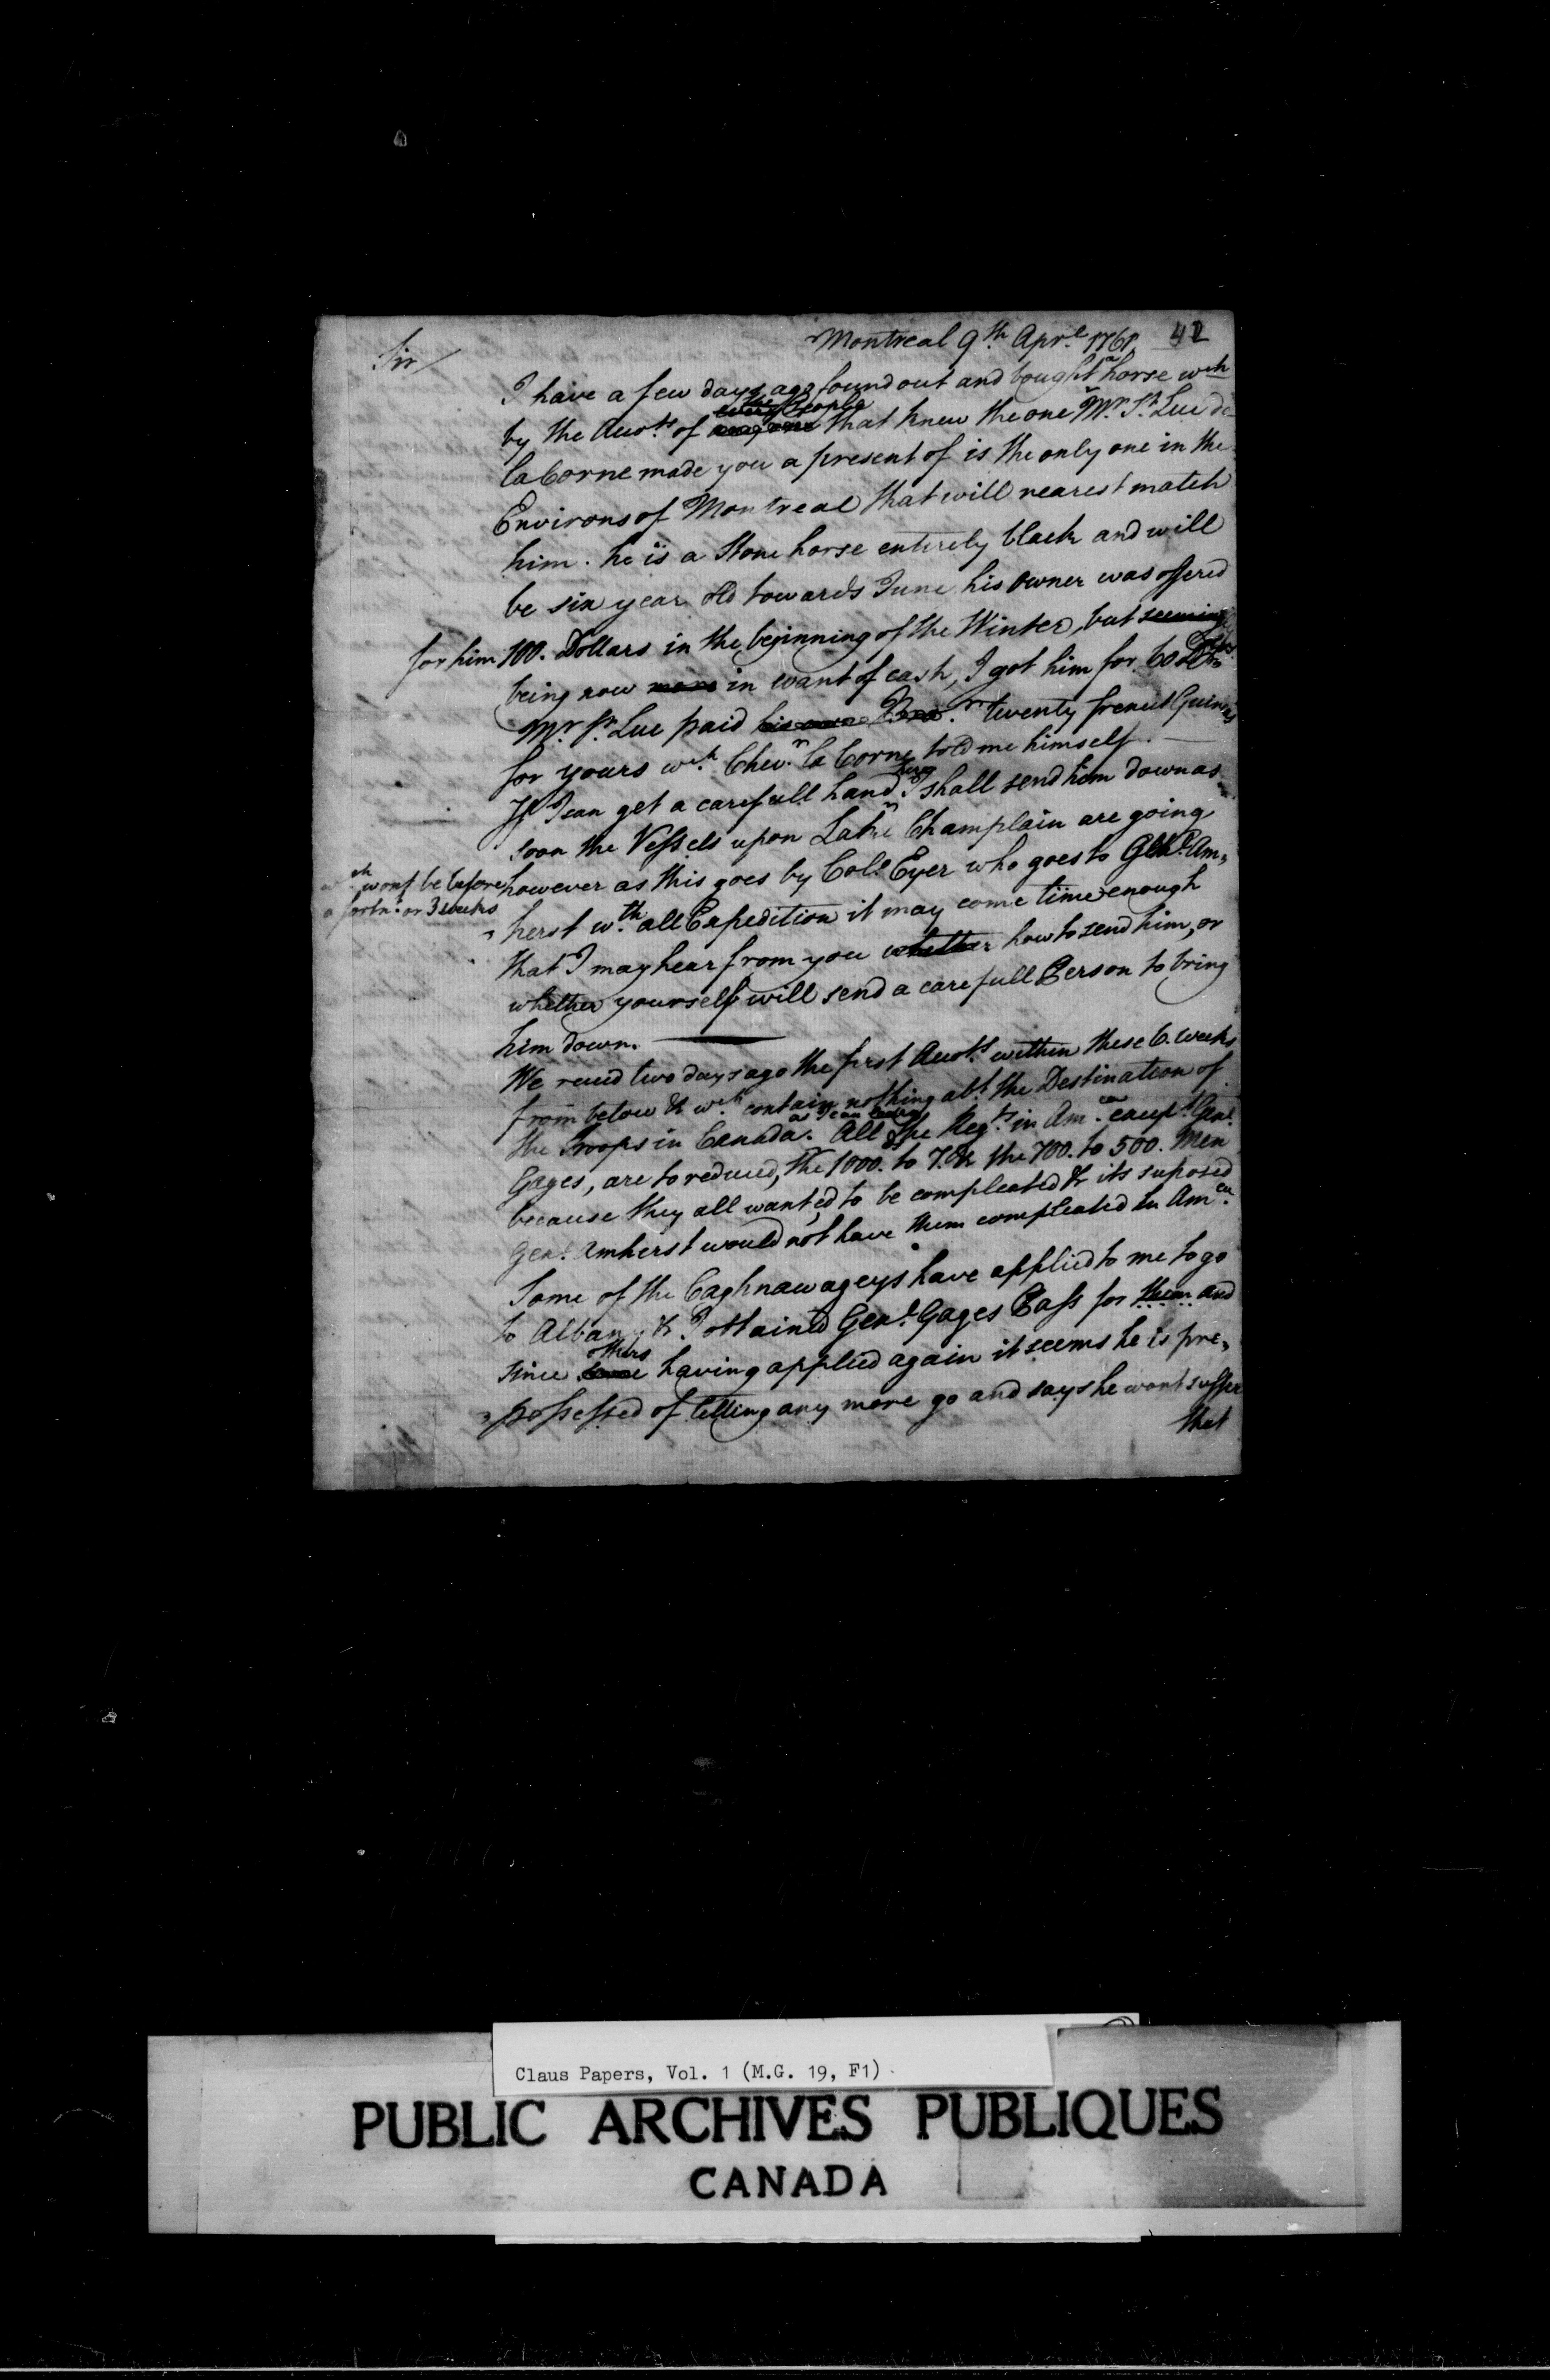 Montreal 9th Aprl. 1761. 42
Sir/
I have a few days ago found out and bought a horse wch
by the Accots. of the People that knew the one Mr. St. Luc de
la Corne made you a present of is the only one in the
Environs of Montreal that will nearest match
him. he is a Stone horse entirely black and will
be six year old towards June his owner was offered
for him 100. Dollars in the beginning of the Winter, but seeming
being now more in want of cash, I got him for 60 Dollrs.
Mr. St. Luc paid his own Bror. twenty french Guineas
for yours wch. Chevr. la Corne told me himself.
If I can get a carefull hand here I shall send him down as
soon the Vessels upon Lake Champlain are going
wch wont be before
a fortnt. or 3 weeks
however as this goes by Col. Eyer who goes to Genl. Am„
„herst wth. all Expedition it may come time enough
that I may hear from you whether how to send him, or
whether yourself will send a carefull Person to bring
him down.
We recd two days ago the first Accots. within these 6. weeks
from below & wch. contain nothing abt. the Destination of
the Troops in Canada. as I can learn All the Regts. in Amca. except Genl.
Gages, are to reduced, the 1000. to 7. & the 700. to 500. Men
because they all wanted to be compleated & its suposed
Genl. Amherst would not have them compleated in Amca.
Some of the Caghnawageys have applied to me to go
to Albany & I obtained Genl. Gages Pass for them and
since some others having applied again it seems he is pre„
„possessed of letting any more go and says he wont suffer
that
Claus Papers, Vol. 1 (M.G. 19, F1)
PUBLIC ARCHIVES PUBLIQUES
CANADA